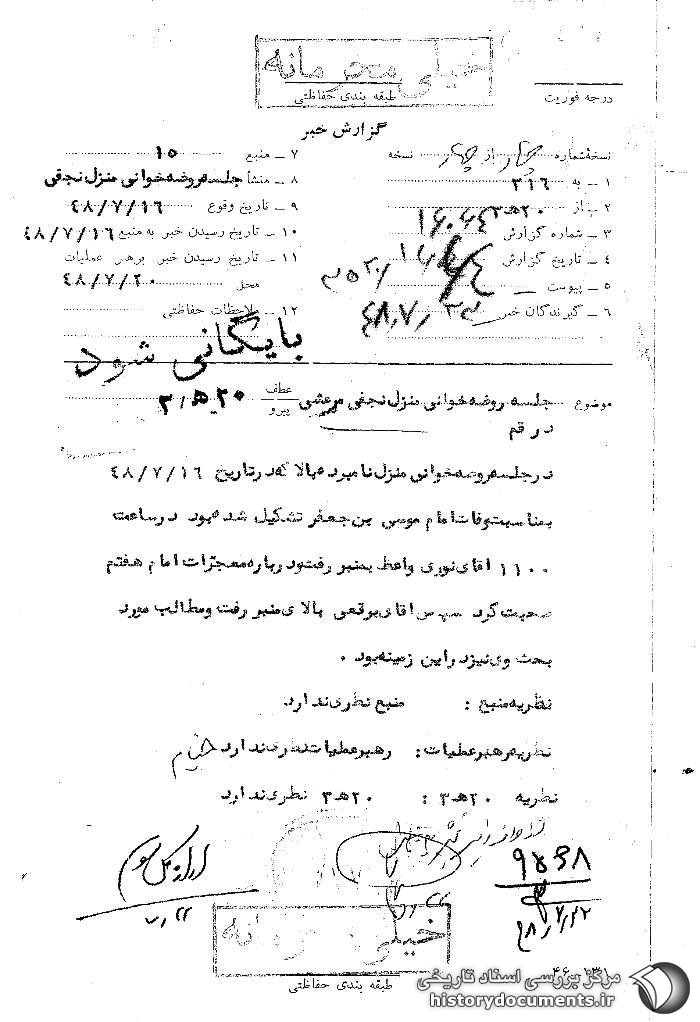 خیلی محرمانه
طبقه بندی حفاظتی
درجه فوریت
گزارش خبر
نسخه شماره چهار از چهار نسخه
۱ ـ به ۳۱۶
۲ ـ از ۲۰ه‍۳
۳ ـ شماره گزارش
۴ ـ تاریخ گزارش
۵ ـ پیوست
۶ ـ گیرندگان خبر
۷ ـ منبع ۱۵
۸ ـ منشأ جلسه روضه خوانی منزل نجفی
۹ ـ تاریخ وقوع ۴۸/۷/۱۶
۱۰ ـ تاریخ رسیدن خبر به منبع ۴۸/۷/۱۶
۱۱ ـ تاریخ رسیدن خبر برهبر عملیات
محل ۴۸/۷/۲۰
۱۲ ـ ملاحظات حفاظتی
بایگانی شود
موضوع جلسه روضه خوانی منزل نجفی مرعشی
در قم
عطف
پیرو
در جلسه روضه خوانی منزل نامبرده بالا که در تاریخ ۴۸/۷/۱۶
بمناسبت وفات امام موسی بن جعفر تشکیل شده بود در ساعت
۱۱۰۰ اقای نوری واعظ بمنبر رفت و درباره معجزات امام هفتم
صحبت کرد سپس اقای برقعی بالای منبر رفت و مطالب مورد
بحث وی نیز در این زمینه بود .
نظریه منبع : منبع نظری ندارد.
نظریه رهبر عملیات : رهبر عملیات نظری ندارد
نظریه ۲۰ه‍۳ : ۲۰ه‍۳ نظری ندارد
خیلی محرمانه
طبقه بندی حفاظتی
مرکز بررسی اسناد تاریخی
historydocuments.ir